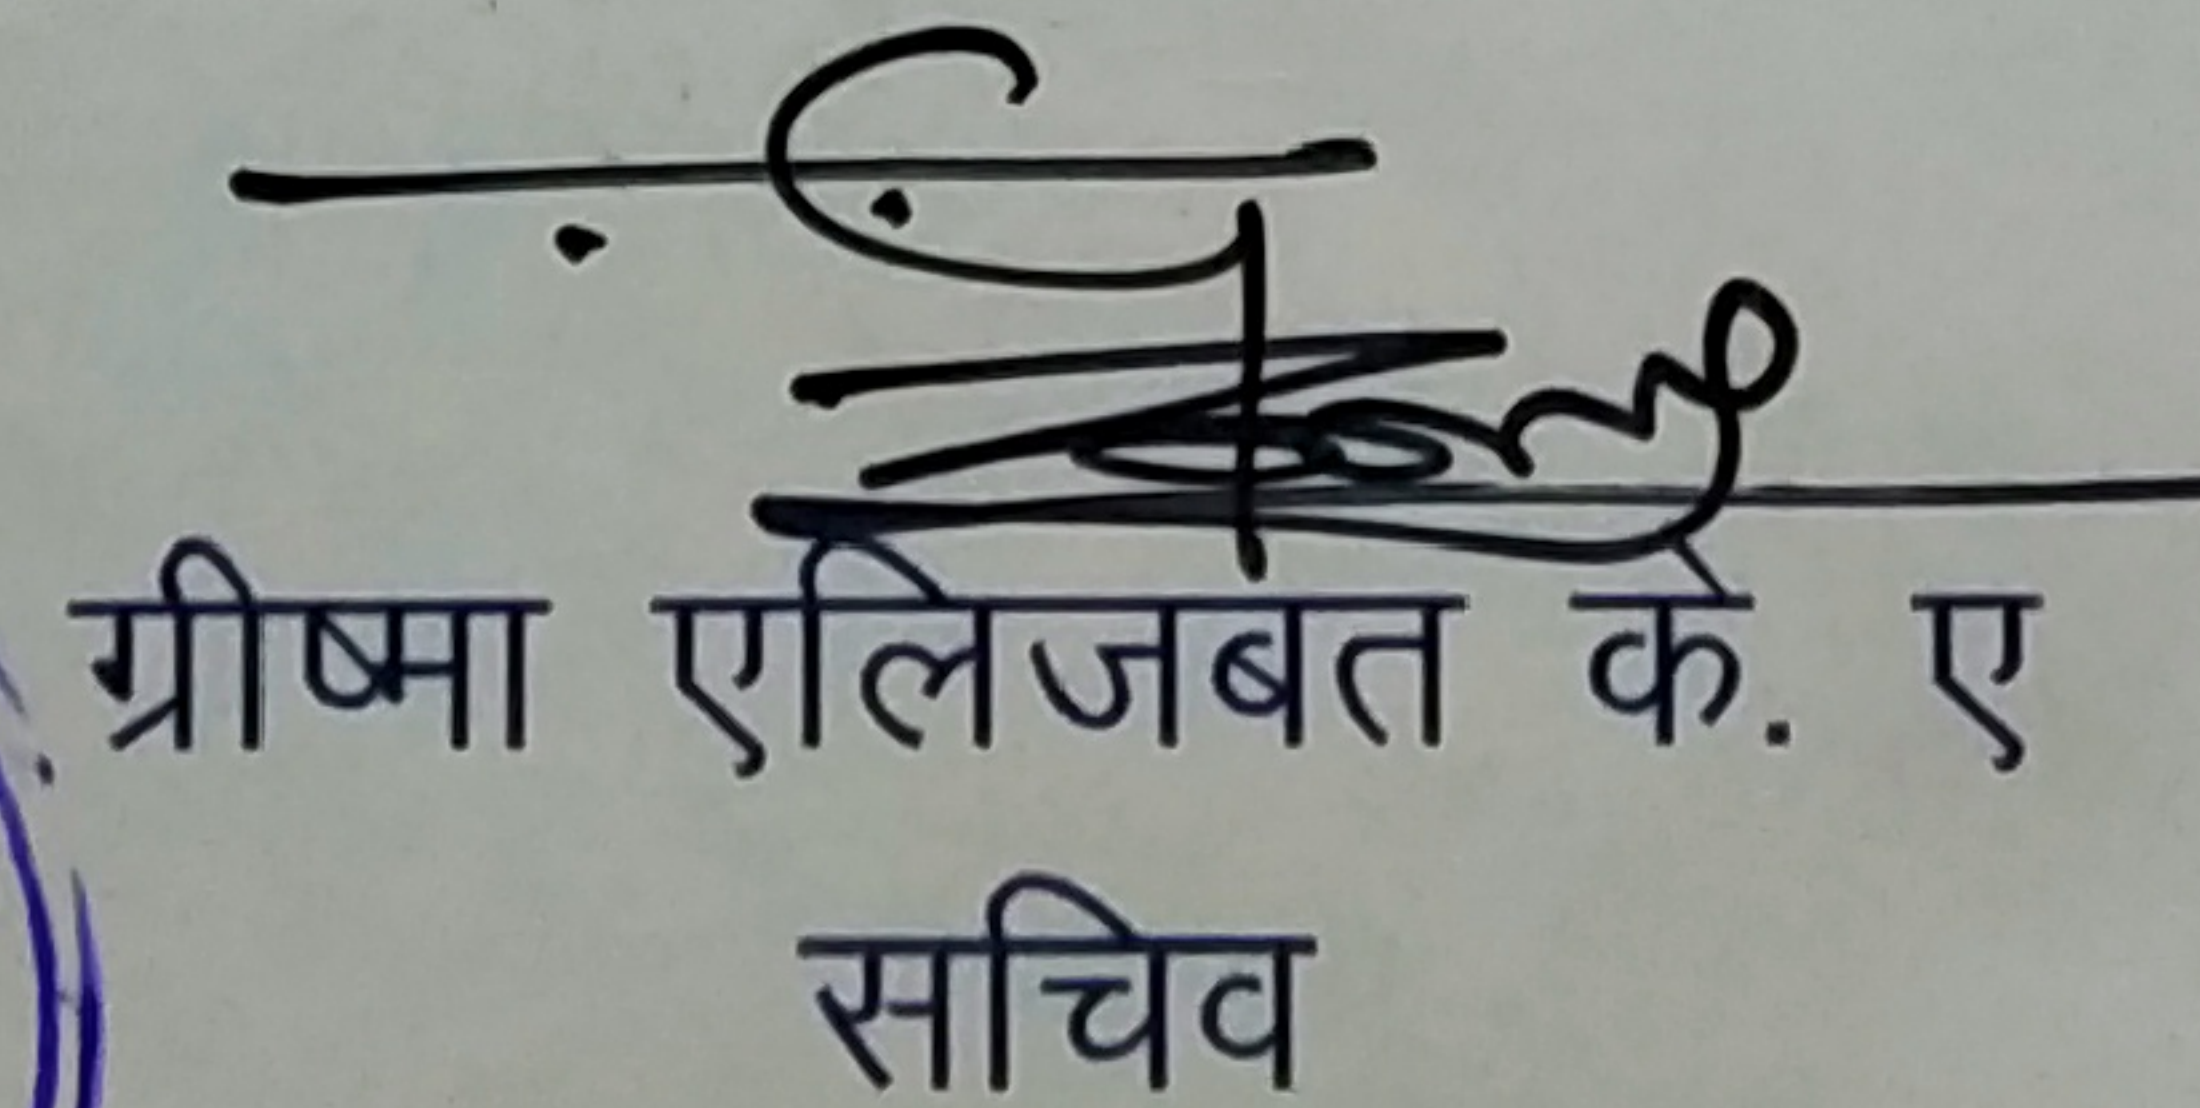 ग्रीष्मा एलिजबत के. ए
सचिव